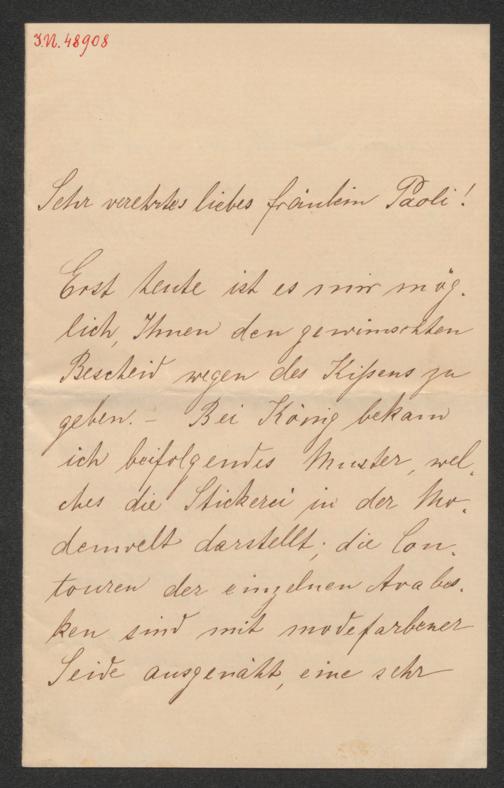 J.N. 48908
Sehr verehrtes liebes Fräulein Paoli!
Erst heute ist es mir mög-
lich, Ihnen den gewünschten
Bescheid wegen des Kißens zu
geben. – Bei König bekam
ich beifolgendes Muster, wel-
ches die Stickerei in der Mo-
denwelt darstellt; die Con-
touren der einzelnen Arabes-
ken sind mit modefarbener
Seide ausgenäht, eine sehr